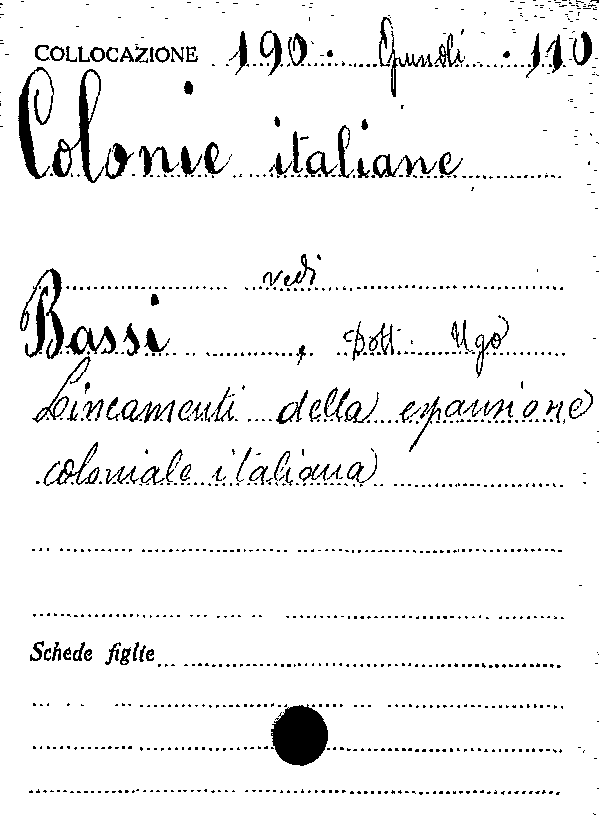 COLLOCAZIONE 190. Opuscoli. 110
Colonie italiane
vedi
Bassi, Dott. Ugo
Lineamenti della espansione
coloniale italiana
Schede figlie